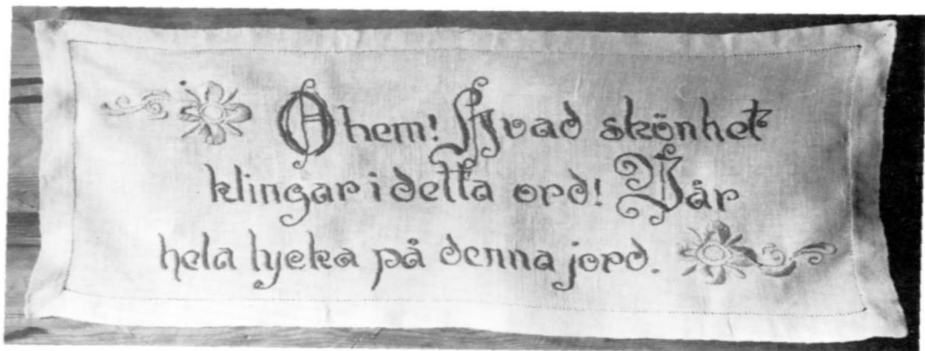 O hem! Hvad skönhet
klingar i detta ord! Vår
hela lycka på denna jord.